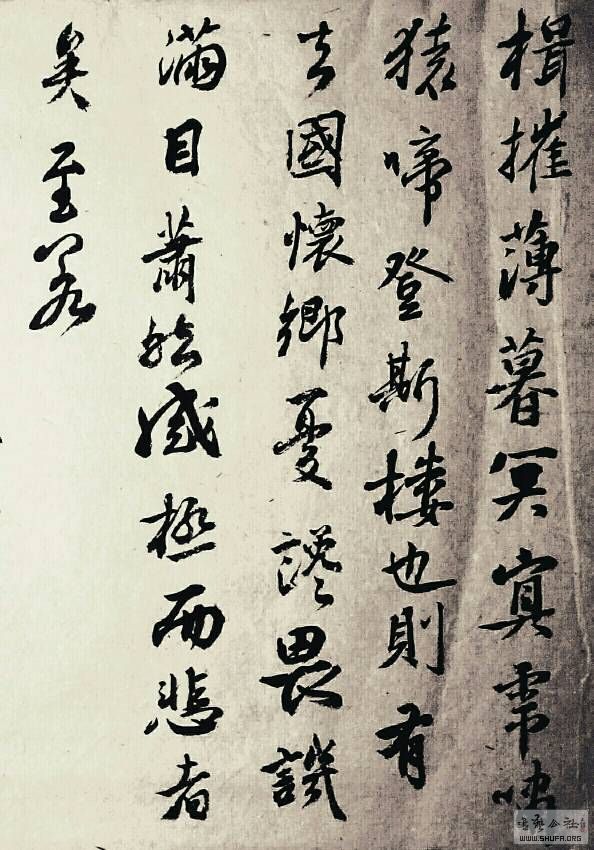 楫摧薄暮冥冥虎嘯
猿啼登斯樓也則有
去國懷鄉憂讒畏譏
滿目蕭然感極而悲者
矣至若
WWW.SHUFA.ORG